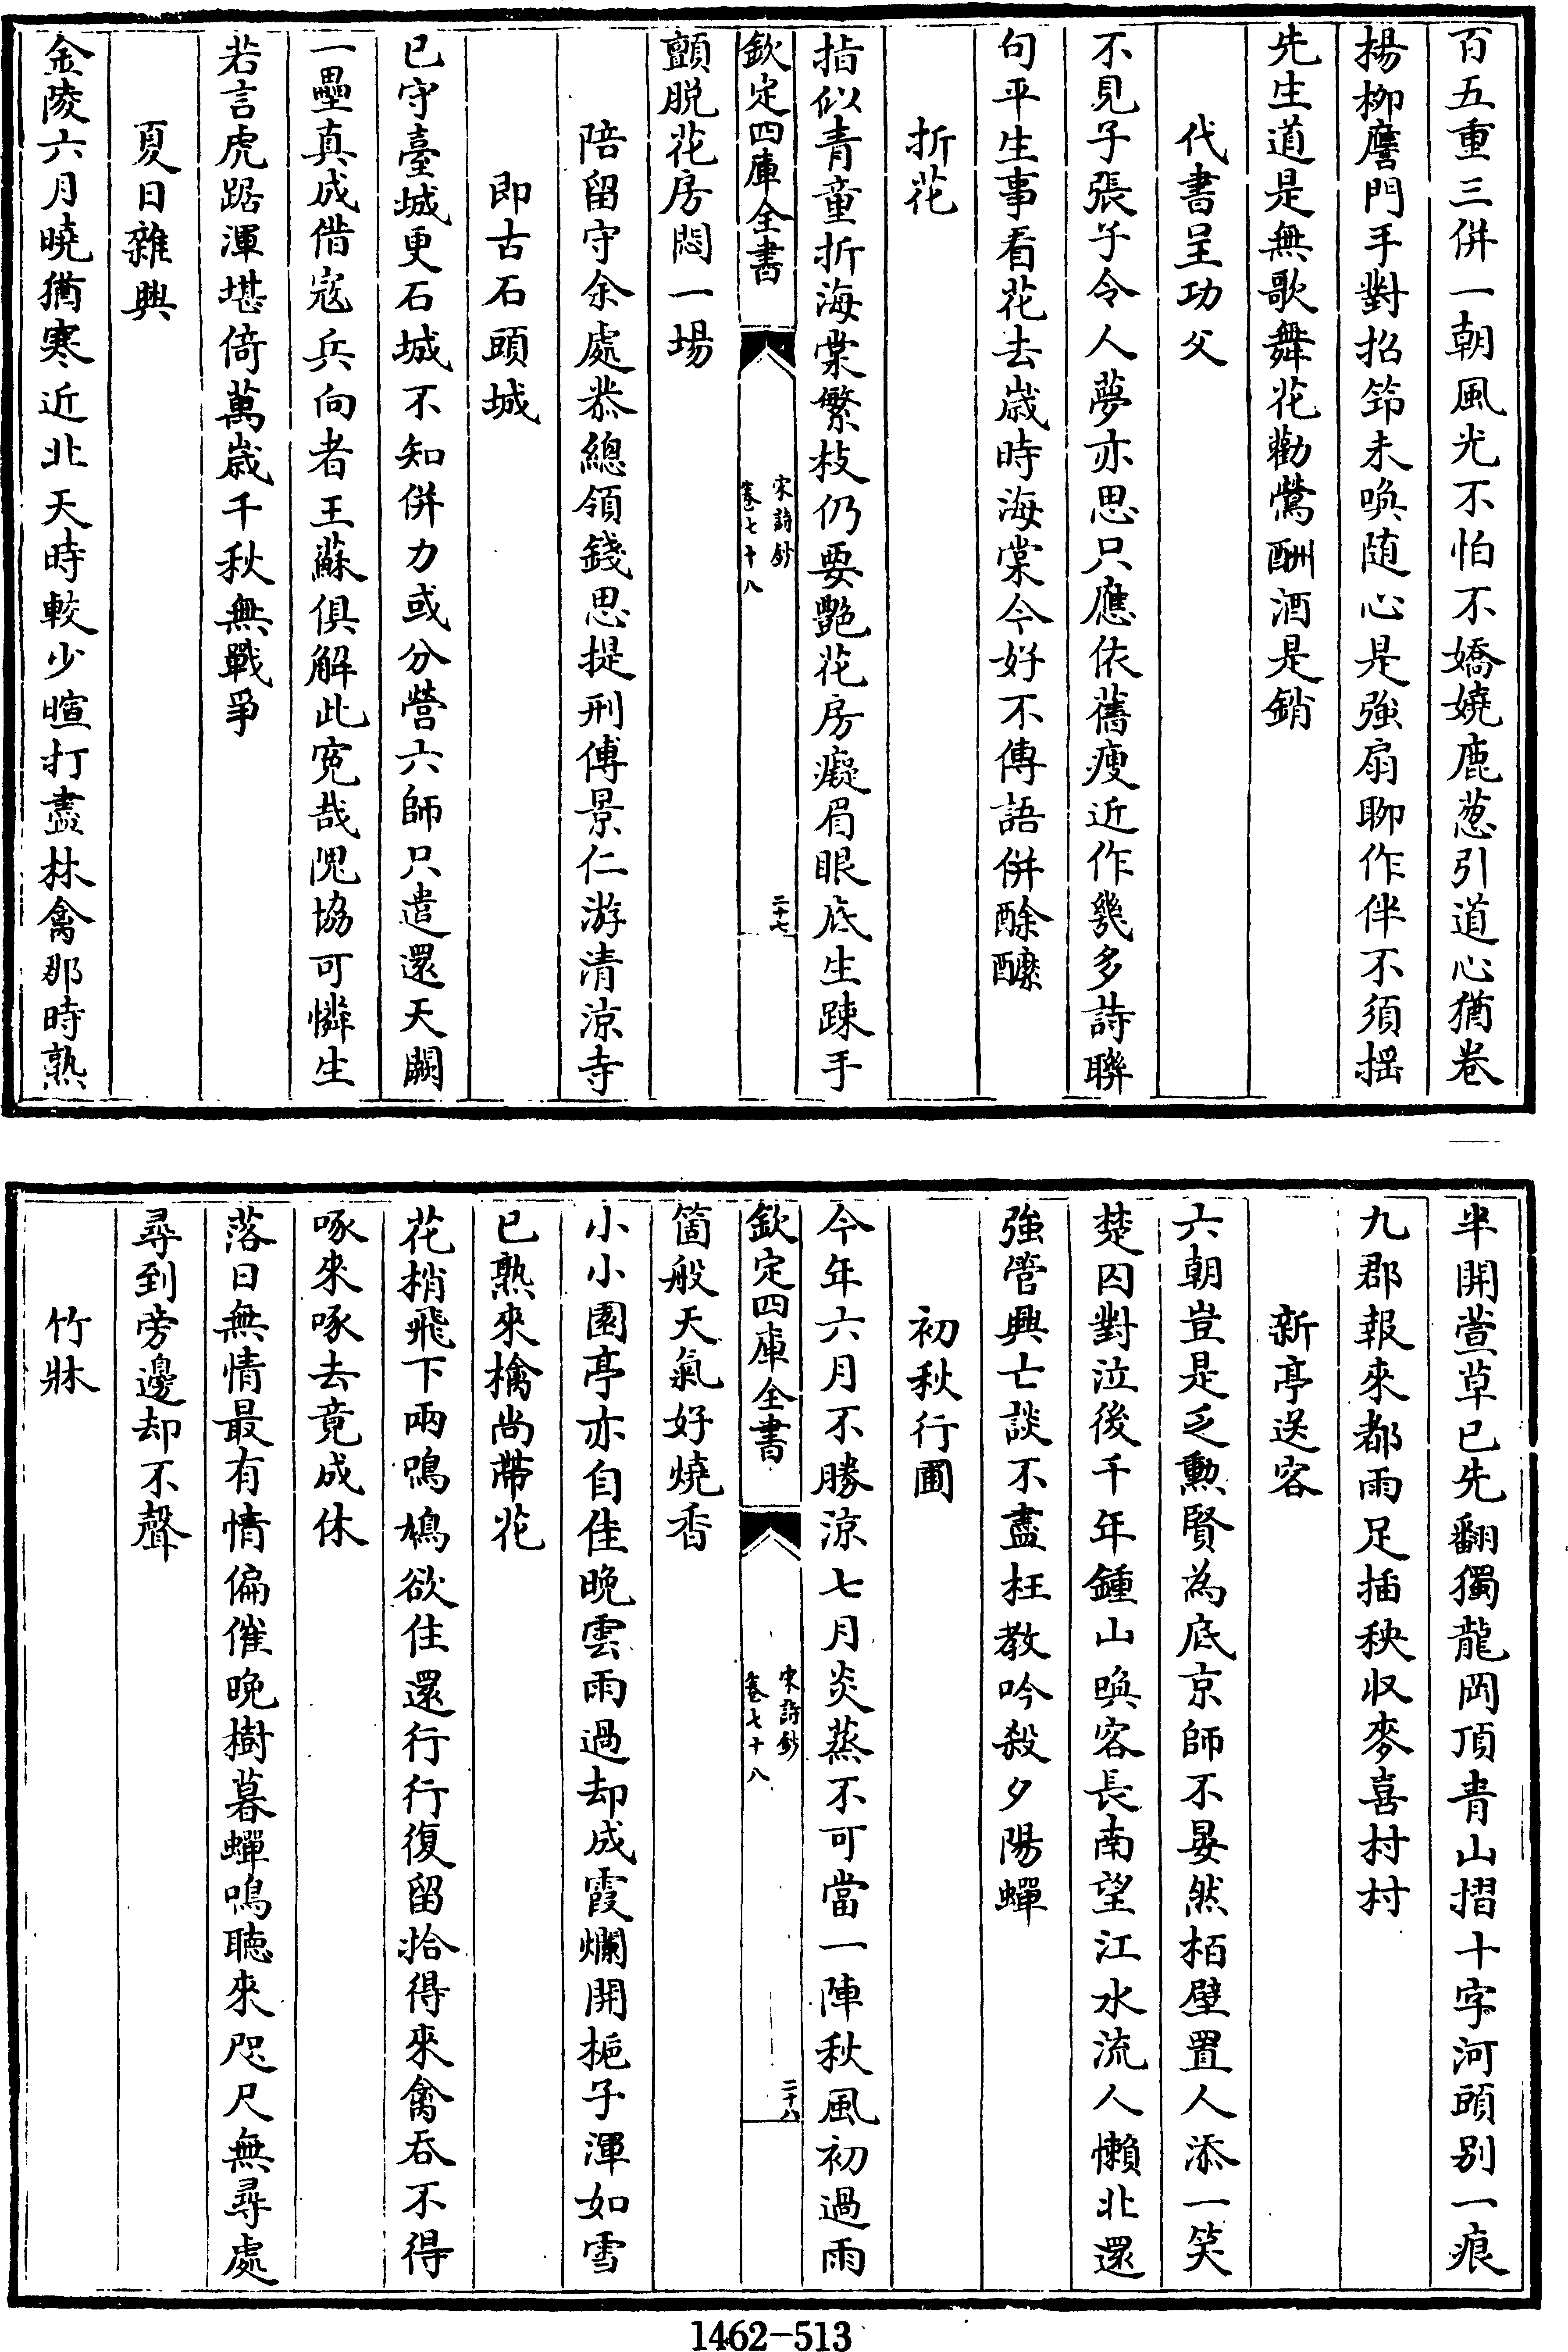 百五重三併一朝風光不怕不嬌嬈鹿葱引道心猶卷
楊柳麾門手對招節未喚随心是強扇聊作伴不須揺
先生道是無歌舞花勸鶯酬酒是銷
代書呈功父
不見子張子令人夢亦思只應依舊瘦近作幾多詩聯
句平生事看花去歳時海棠今好不傳語併酴醾
折花
指似青童折海棠繁枝仍要艶花房癡眉眼底生疎手
欽定四庫全書
宋詩鈔
卷七十八
二十七
顫脱花房悶一場
陪留守余處恭總領錢思提刑傅景仁游清涼寺
即古石頭城
已守臺城更石城不知併力或分營六師只遣還天闕
一壘真成借宼兵向者王蘇俱解此寃哉隗協可憐生
若言虎踞渾堪倚萬歳千秋無戰爭
夏日雜興
金陵六月曉猶寒近北天時較少暄打盡林禽那時熟
半開萱草已先翻獨龍岡頂青山摺十字河頭别一痕
九郡報來都雨足插秧収麥喜村村
新亭送客
六朝豈是乏勲賢為底京師不晏然栢壁置人添一笑
楚囚對泣後千年鍾山喚客長南望江水流人懶北還
強管興亡談不盡枉教吟殺夕陽蟬
初秋行圃
今年六月不勝涼七月炎蒸不可當一陣秋風初過雨
欽定四庫全書
宋詩鈔
卷七十八
二十八
箇般天氣好燒香
小小園亭亦自佳晩雲雨過却成霞爛開梔子渾如雪
已熟來檎尚帶花
花梢飛下兩鳴鳩欲住還行行復留拾得來禽吞不得
啄來啄去竟成休
落日無情最有情偏催晩樹暮蟬鳴聴來咫尺無尋處
尋到旁邊却不聲
竹牀
1462-513